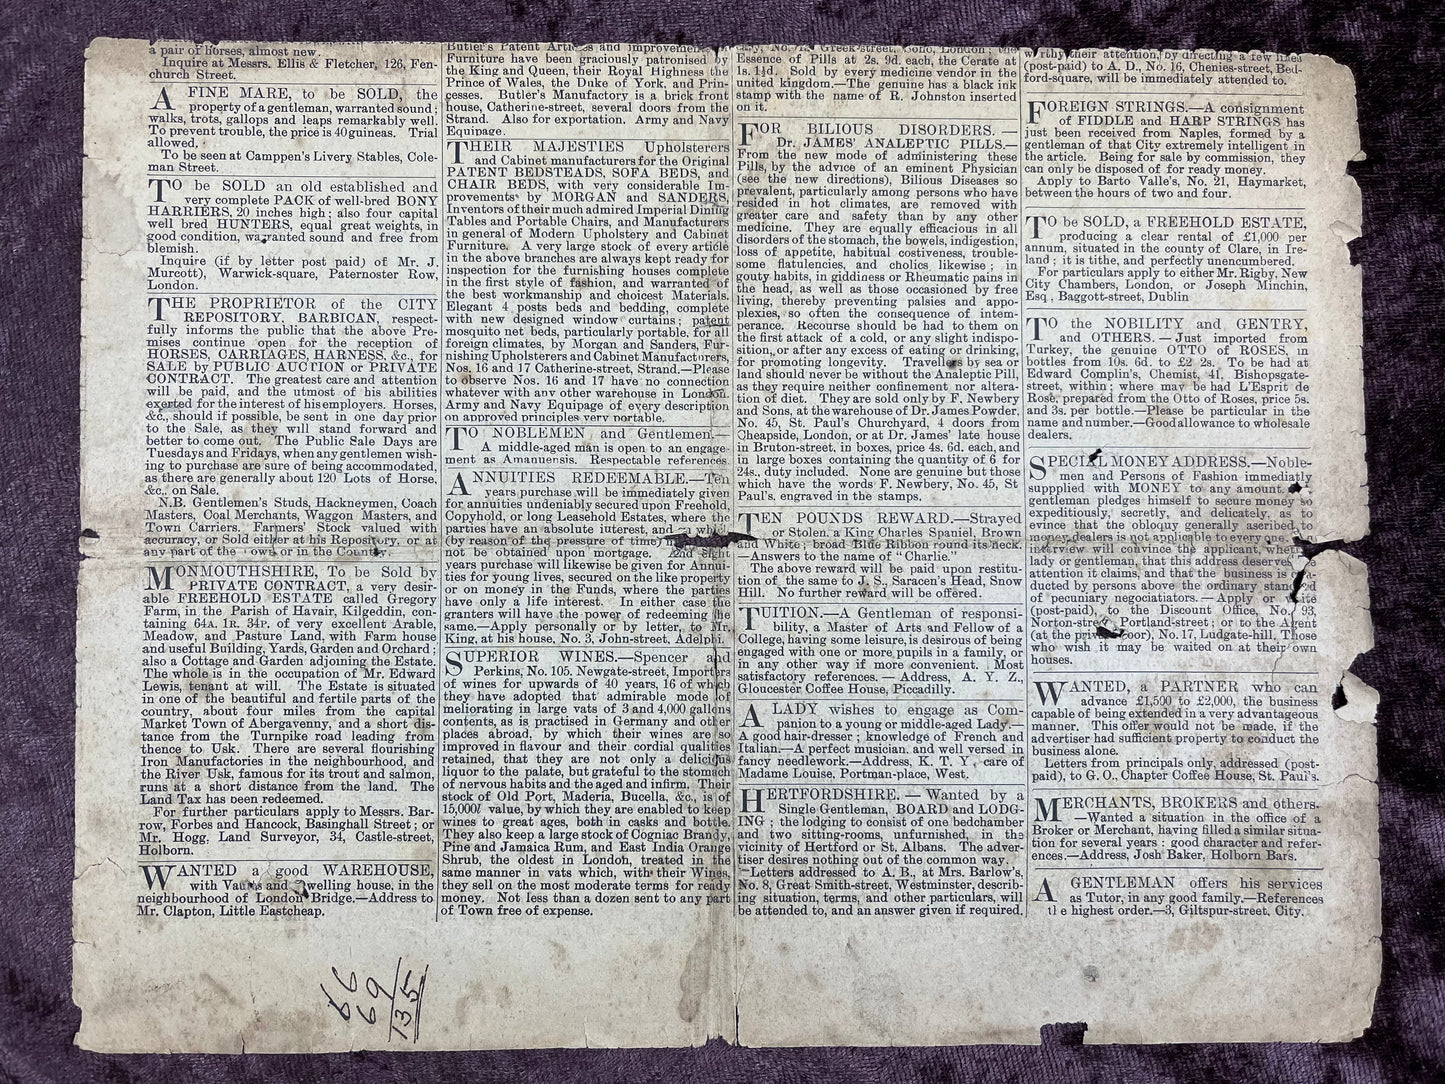 a pair of horses, almost new.
Inquire at Messrs. Ellis & Fletcher, 126, Fen-
church Street.
A FINE MARE, to be SOLD, the
property of a gentleman, warranted sound;
walks, trots, gallops and leaps remarkably well.
To prevent trouble, the price is 40 guineas. Trial
allowed.
To be seen at Camppen's Livery Stables, Cole-
man Street.
TO be SOLD an old established and
very complete PACK of well-bred BONY
HARRIERS, 20 inches high; also four capital
well bred HUNTERS, equal great weights, in
good condition, warranted sound and free from
blemish.
Inquire (if by letter post paid) of Mr. J.
Murcott), Warwick-square, Paternoster Row,
London.
THE PROPRIETOR of the CITY
REPOSITORY, BARBICAN, respect-
fully informs the public that the above Pre-
mises continue open for the reception of
HORSES, CARRIAGES, HARNESS, &c., for
SALE by PUBLIC AUCTION or PRIVATE
CONTRACT. The greatest care and attention
will be paid, and the utmost of his abilities
exerted for the interest of his employers. Horses,
&c., should if possible, be sent in one day prior
to the Sale, as they will stand forward and
better to come out. The Public Sale Days are
Tuesdays and Fridays, when any gentlemen wish-
ing to purchase are sure of being accommodated,
as there are generally about 120 Lots of Horse,
&c., on Sale.
N.B. Gentlemen's Studs, Hackneymen, Coach
Masters, Coal Merchants, Waggon Masters, and
Town Carriers, Farmers' Stock valued with
accuracy, or Sold either at his Repository, or at
any part of the own or in the County.
MONMOUTHSHIRE, To be Sold by
PRIVATE CONTRACT, a very desir-
able FREEHOLD ESTATE called Gregory
Farm, in the Parish of Havair, Kilgeddin, con-
taining 64A. 1R. 34P. of very excellent Arable,
Meadow, and Pasture Land, with Farm house
and useful Building, Yards, Garden and Orchard;
also a Cottage and Garden adjoining the Estate.
The whole is in the occupation of Mr. Edward
Lewis, tenant at will. The Estate is situated
in one of the beautiful and fertile parts of the
country, about four miles from the capital
Market Town of Abergavenny, and a short dis-
tance from the Turnpike road leading from
thence to Usk. There are several flourishing
Iron Manufactories in the neighbourhood, and
the River Usk, famous for its trout and salmon,
runs at a short distance from the land. The
Land Tax has been redeemed.
For further particulars apply to Messrs. Bar-
row, Forbes and Hancock, Basinghall Street; or
Mr. Hogg, Land Surveyor, 34, Castle-street,
Holborn.
WANTED a good WAREHOUSE,
with Vaults and Dwelling house, in the
neighbourhood of London Bridge.—Address to
Mr. Clapton, Little Eastcheap.
Butler's Patent Articles and improvements
Furniture have been graciously patronised by
the King and Queen, their Royal Highness the
Prince of Wales, the Duke of York, and Prin-
cesses. Butler's Manufactory is a brick front
house, Catherine-street, several doors from the
Strand. Also for exportation. Army and Navy
Equipage.
THEIR MAJESTIES Upholsterers
and Cabinet manufacturers for the Original
PATENT BEDSTEADS, SOFA BEDS, and
CHAIR BEDS, with very considerable Im-
provements by MORGAN and SANDERS,
Inventors of their much admired Imperial Dining
Tables and Portable Chairs, and Manufacturers
in general of Modern Upholstery and Cabinet
Furniture. A very large stock of every article
in the above branches are always kept ready for
inspection for the furnishing houses complete
in the first style of fashion, and warranted of
the best workmanship and choicest Materials.
Elegant 4 posts beds and bedding, complete
with new designed window curtains; patent
mosquito net beds, particularly portable, for all
foreign climates, by Morgan and Sanders, Fur-
nishing Upholsterers and Cabinet Manufacturers,
Nos. 16 and 17 Catherine-street, Strand.—Please
to observe Nos. 16 and 17 have no connection
whatever with any other warehouse in London.
Army and Navy Equipage of every description
on approved principles very portable.
TO NOBLEMEN and Gentlemen.—
A middle-aged man is open to an engage-
ment as Amanuensis. Respectable references
ANNUITIES REDEEMABLE.—Ten
years purchase will be immediately given
for annuities undeniably secured upon Freehold,
Copyhold, or long Leasehold Estates, where the
parties have an absolute interest, and
(by reason of the pressure of time)
not be obtained upon mortgage. And eight
years purchase will likewise be given for Annui-
ties for young lives, secured on the like property
or on money in the Funds, where the parties
have only a life interest. In either case the
granters will have the power of redeeming the
same.—Apply personally or by letter, to Mr.
King, at his house, No. 3, John-street, Adelphi.
SUPERIOR WINES.—Spencer and
Perkins, No. 105, Newgate-street, Importers
of wines for upwards of 40 years, 16 of which
they have adopted that admirable mode of
meliorating in large vats of 3 and 4,000 gallens
contents, as is practised in Germany and other
places abroad, by which their wines are so
improved in flavour and their cordial qualities
retained, that they are not only a delicious
liquor to the palate, but grateful to the stomach
of nervous habits and the aged and infirm. Their
stock of Old Port, Maderia, Bucella, &c., is of
15,000l value, by which they are enabled to keep
wines to great ages, both in casks and bottle.
They also keep a large stock of Cogniac Brandy,
Pine and Jamaica Rum, and East India Orange
Shrub, the oldest in London, treated in the
same manner in vats which, with their Wines,
they sell on the most moderate terms for ready
money. Not less than a dozen sent to any part
of Town free of expense.
Greek-street, Soho, London; the
Essence of Pills at 2s. 9d. each, the Cerate at
1s. 1½d. Sold by every medicine vendor in the
united kingdom.—The genuine has a black ink
stamp with the name of R. Johnston inserted
on it.
FOR BILIOUS DISORDERS.—
Dr. JAMES' ANALEPTIC PILLS.—
From the new mode of administering these
Pills, by the advice of an eminent Physician
(see the new directions), Bilious Diseases so
prevalent, particularly among persons who have
resided in hot climates, are removed with
greater care and safety than by any other
medicine. They are equally efficacious in all
disorders of the stomach, the bowels, indigestion,
loss of appetite, habitual costiveness, trouble-
some flatulencies, and cholics likewise; in
gouty habits, in giddiness or Rheumatic pains in
the head, as well as those occasioned by free
living, thereby preventing palsies and appo-
plexies, so often the consequence of intem-
perance. Recourse should be had to them on
the first attack of a cold, or any slight indispo-
sition, or after any excess of eating or drinking,
for promoting longevity. Travellers by sea or
land should never be without the Analeptic Pill,
as they require neither confinement nor altera-
tion of diet. They are sold only by F. Newbery
and Sons, at the warehouse of Dr. James Powder,
No. 45, St. Paul's Churchyard, 4 doors from
Cheapside, London, or at Dr. James' late house
in Bruton-street, in boxes, price 4s. 6d. each, and
in large boxes containing the quantity of 6 for
24s., duty included. None are genuine but those
which have the words F. Newbery, No. 45, St
Paul's, engraved in the stamps.
TEN POUNDS REWARD.—Strayed
or Stolen, a King Charles Spaniel, Brown
and White; broad Blue Ribbon round its neck.
—Answers to the name of "Charlie."
The above reward will be paid upon restitu-
tion of the same to J. S., Saracen's Head, Snow
Hill. No further reward will be offered.
TUITION.—A Gentleman of responsi-
bility, a Master of Arts and Fellow of a
College, having some leisure, is desirous of being
engaged with one or more pupils in a family, or
in any other way if more convenient. Most
satisfactory references.—Address, A. Y. Z.,
Gloucester Coffee House, Piccadilly.
A LADY wishes to engage as Com-
panion to a young or middle-aged Lady.—
A good hair-dresser; knowledge of French and
Italian.—A perfect musician, and well versed in
fancy needlework.—Address, K. T. Y., care of
Madame Louise, Portman-place, West.
HERTFORDSHIRE.—Wanted by a
Single Gentleman, BOARD and LODG-
ING; the lodging to consist of one bedchamber
and two sitting-rooms, unfurnished, in the
vicinity of Hertford or St. Albans. The adver-
tiser desires nothing out of the common way.
—Letters addressed to A. B., at Mrs. Barlow's,
No. 8, Great Smith-street, Westminster, describ-
ing situation, terms, and other particulars, will
be attended to, and an answer given if required.
worthy their attention, by directing a few lines
(post-paid) to A. D., No. 16, Chenies-street, Bed-
ford-square, will be immediately attended to.
FOREIGN STRINGS.—A consignment
of FIDDLE and HARP STRINGS has
just been received from Naples, formed by a
gentleman of that City extremely intelligent in
the article. Being for sale by commission, they
can only be disposed of for ready money.
Apply to Barto Valle's, No. 21, Haymarket,
between the hours of two and four.
TO be SOLD, a FREEHOLD ESTATE,
producing a clear rental of £1,000 per
annum, situated in the county of Clare, in Ire-
land; it is tithe, and perfectly unencumbered.
For particulars apply to either Mr. Rigby, New
City Chambers, London, or Joseph Minchin,
Esq., Baggott-street, Dublin
TO the NOBILITY and GENTRY,
and OTHERS.—Just imported from
Turkey, the genuine OTTO of ROSES, in
bottles from 10s. 6d. to £2 2s. To be had at
Edward Complin's, Chemist, 41, Bishopsgate-
street, within; where may be had L'Esprit de
Rose, prepared from the Otto of Roses, price 5s.
and 3s. per bottle.—Please be particular in the
name and number.—Good allowance to wholesale
dealers.
SPECIAL MONEY ADDRESS.—Noble-
men and Persons of Fashion immediately
suppplied with MONEY to any amount. A
gentleman pledges himself to secure money so
expeditiously, secretly, and delicately, as to
evince that the obloquy generally ascribed to
dealers is not applicable to every one.
will convince the applicant, when
lady or gentleman, that this address deserves the
attention it claims, and that the business is
ducted by persons above the ordinary standard
of pecuniary negociatiators.—Apply or write
(post-paid), to the Discount Office, No. 93,
Norton-street, Portland-street; or to the Agent
(at the private door), No. 17, Ludgate-hill. Those
who wish it may be waited on at their own
houses.
WANTED, a PARTNER who can
advance £1,500 to £2,000, the business
capable of being extended in a very advantageous
manner. This offer would not be made, if the
advertiser had sufficient property to conduct the
business alone.
Letters from principals only, addressed (post-
paid), to G. O., Chapter Coffee House, St. Paul's.
MERCHANTS, BROKERS and others-
—Wanted a situation in the office of a
Broker or Merchant, having filled a similar situa-
tion for several years: good character and refer-
ences.—Address, Josh Baker, Holborn Bars.
A GENTLEMAN offers his services
as Tutor, in any good family.—References
the highest order.—3, Giltspur-street, City.
66
69
135